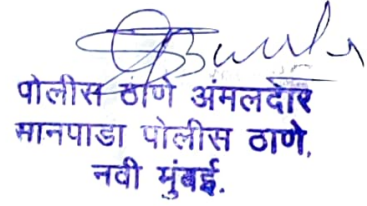 पोलीस ठाणे अंमलदार
मानपाडा पोलीस ठाणे,
नवी मुंबई.